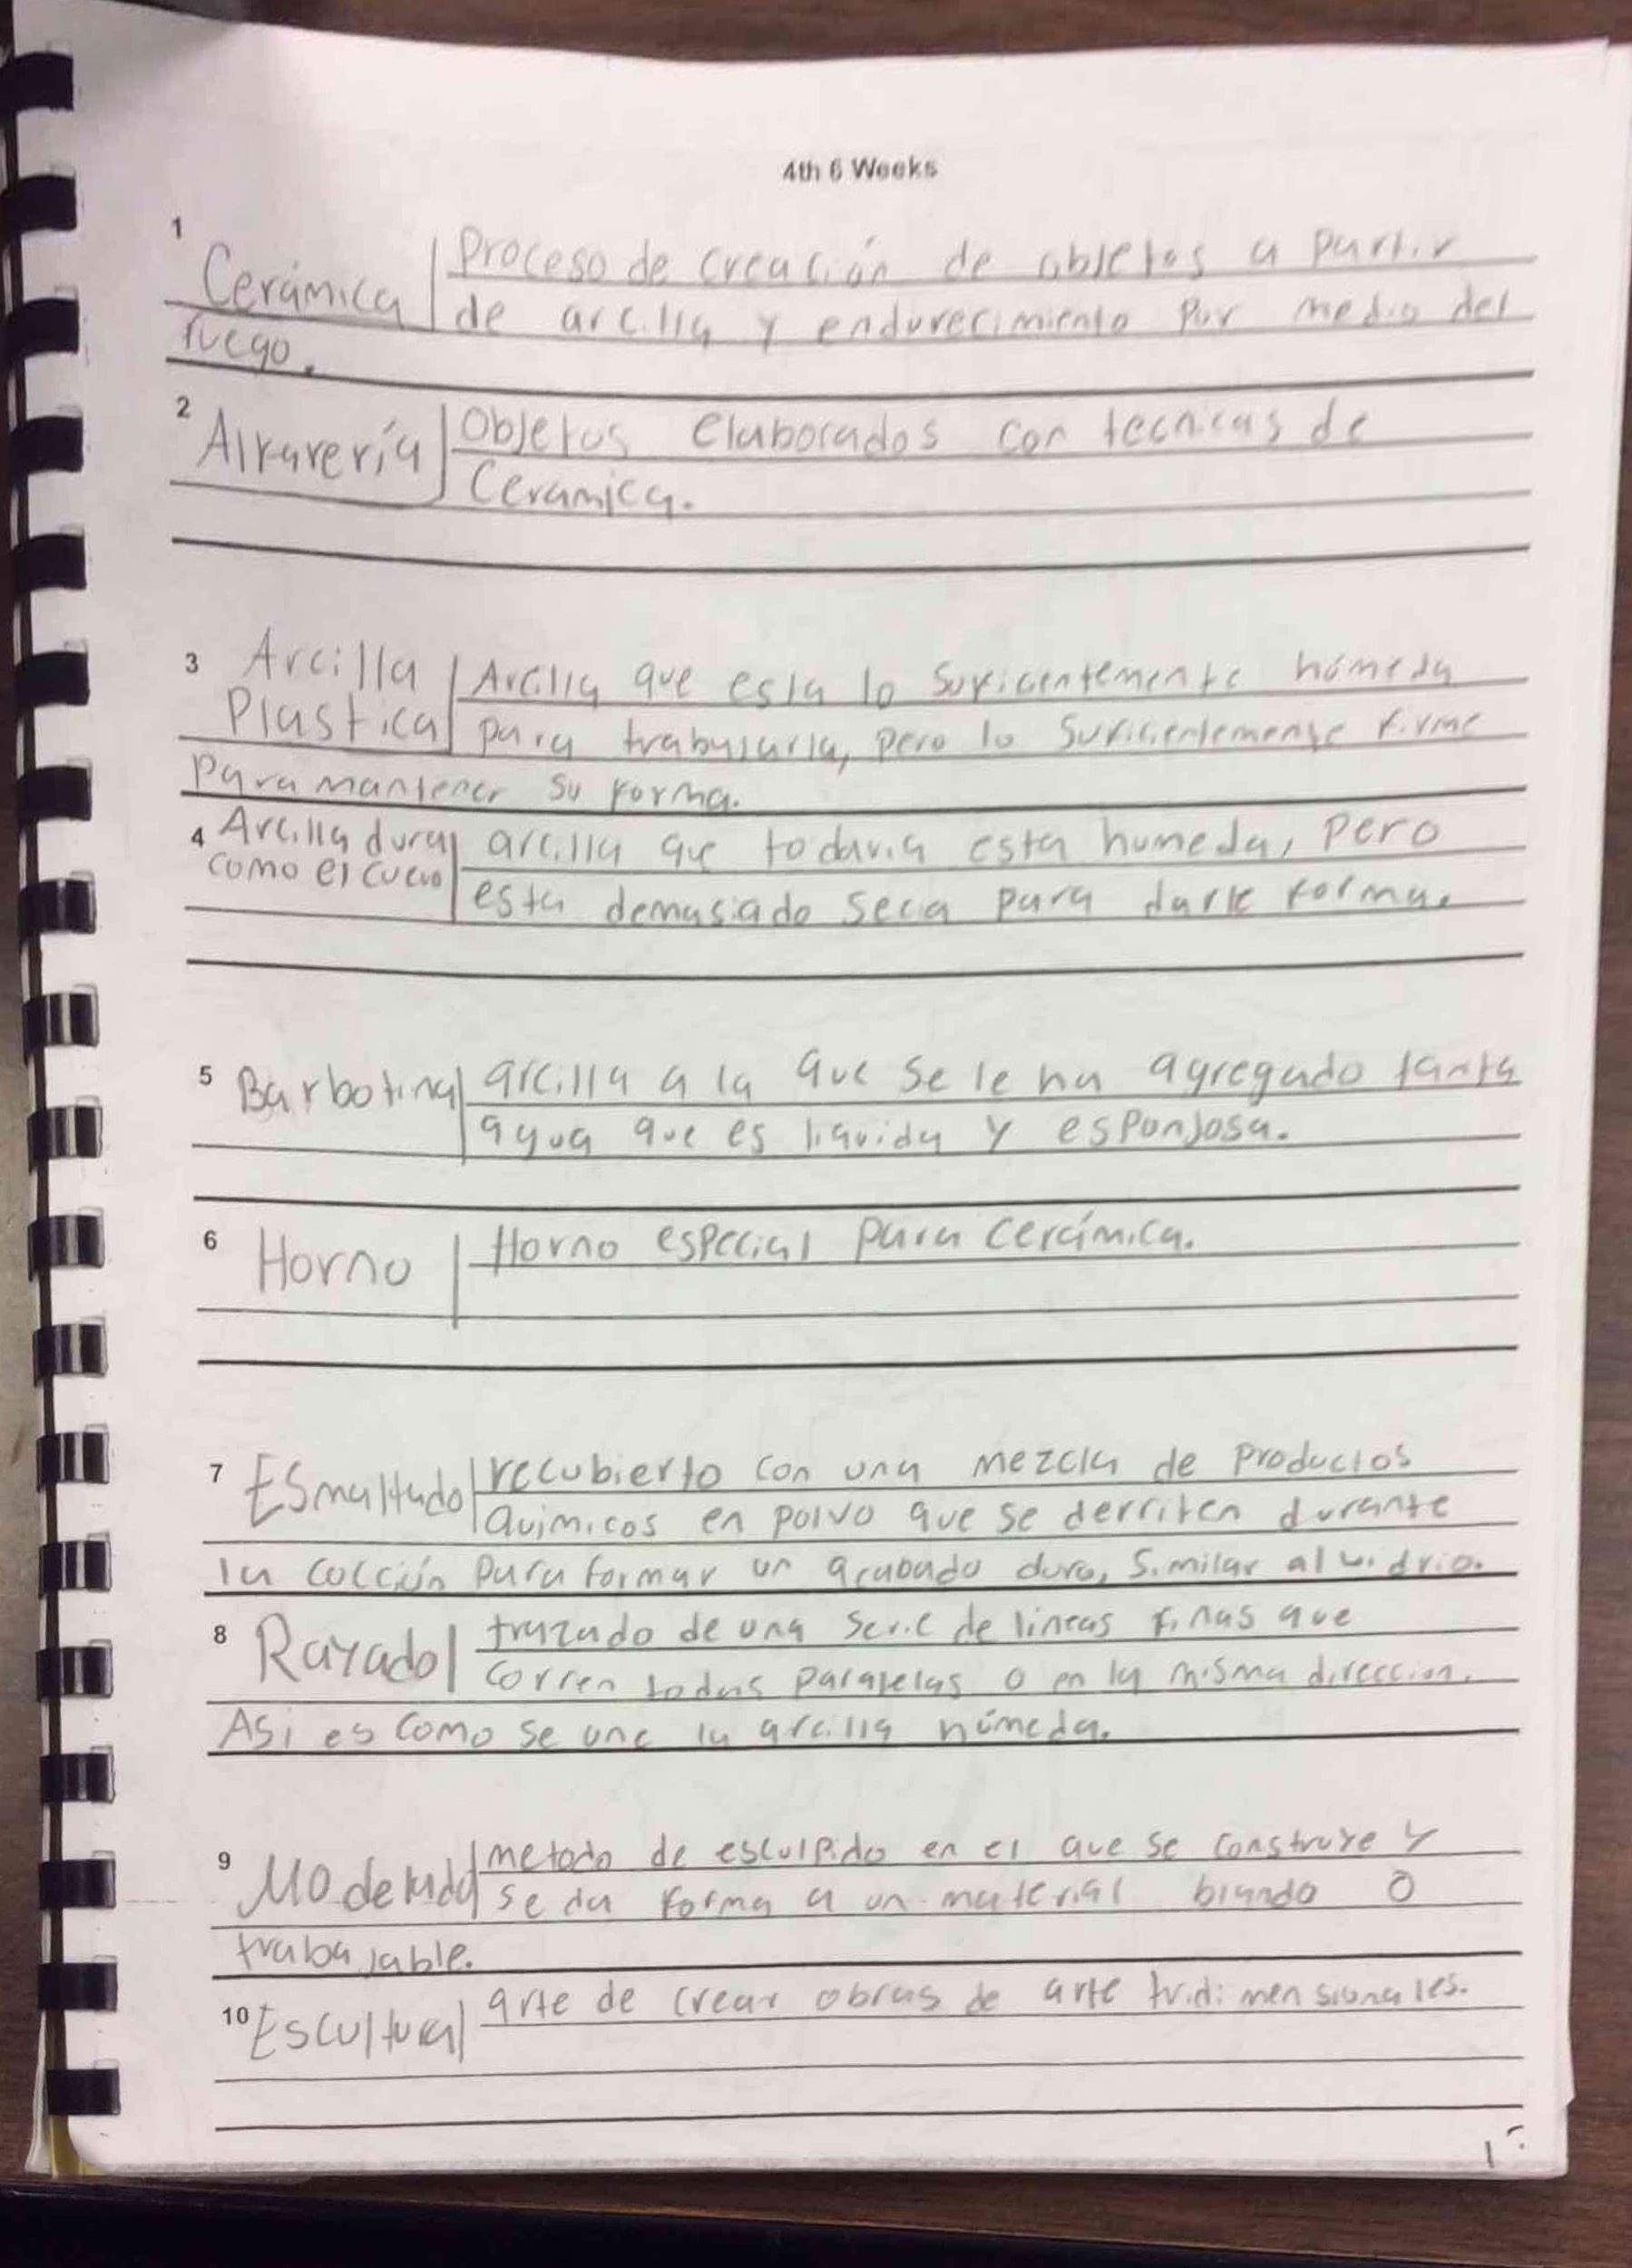 4th 6 Weeks
1
Cerámica | Proceso de creación de objetos a partir
de arcilla y endurecimiento por medio del
fuego.
2
Alfarería | Objetos elaborados con tecnicas de
Ceramica.
3 Arcilla Plastica | Arcilla que esta lo suficientemente húmeda
para trabajarla, pero lo suficientemente firme
para mantener su forma.
4 Arcilla dura como el cuero | arcilla que todavia esta humeda, pero
esta demasiado seca para darle forma.
5 Barbotina | arcilla a la que se le ha agregado tanta
agua que es liquida y esponjosa.
6 Horno | Horno especial para cerámica.
7 Esmaltado | recubierto con una mezcla de productos
quimicos en polvo que se derriten durante
la cocción para formar un acabado duro, similar al vidrio.
8 Rayado | trazado de una serie de lineas finas que
corren todas paralelas o en la misma direccion.
Asi es como se une la arcilla húmeda.
9 Modelado | metodo de esculpido en el que se construye y
se da forma a un material blando o
trabajable.
10 Escultura | arte de crear obras de arte tridimensionales.